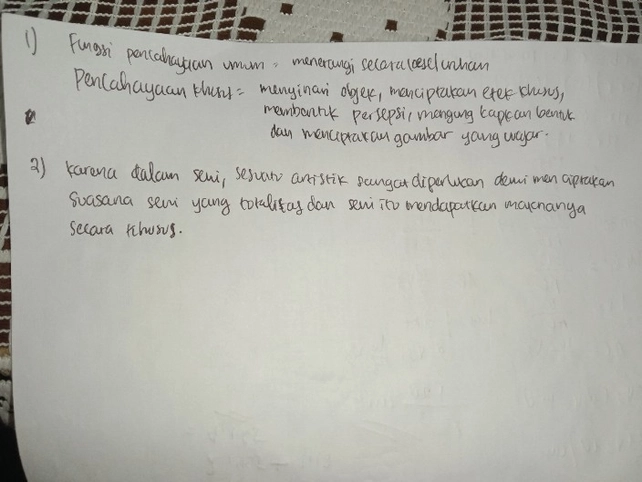 1) Fungsi pencahayaan umum = menerangi secara keseluruhan
Pencahayaan khusus = menyinari objek, menciptakan efek khusus,
membentuk persepsi, mengungkapkan bentuk
dan menciptakan gambar yang wajar.
2) Karena dalam seni, sesuatu artistik sangat diperlukan demi menciptakan
suasana seni yang totalitas dan seni itu mendapatkan maknanya
secara khusus.